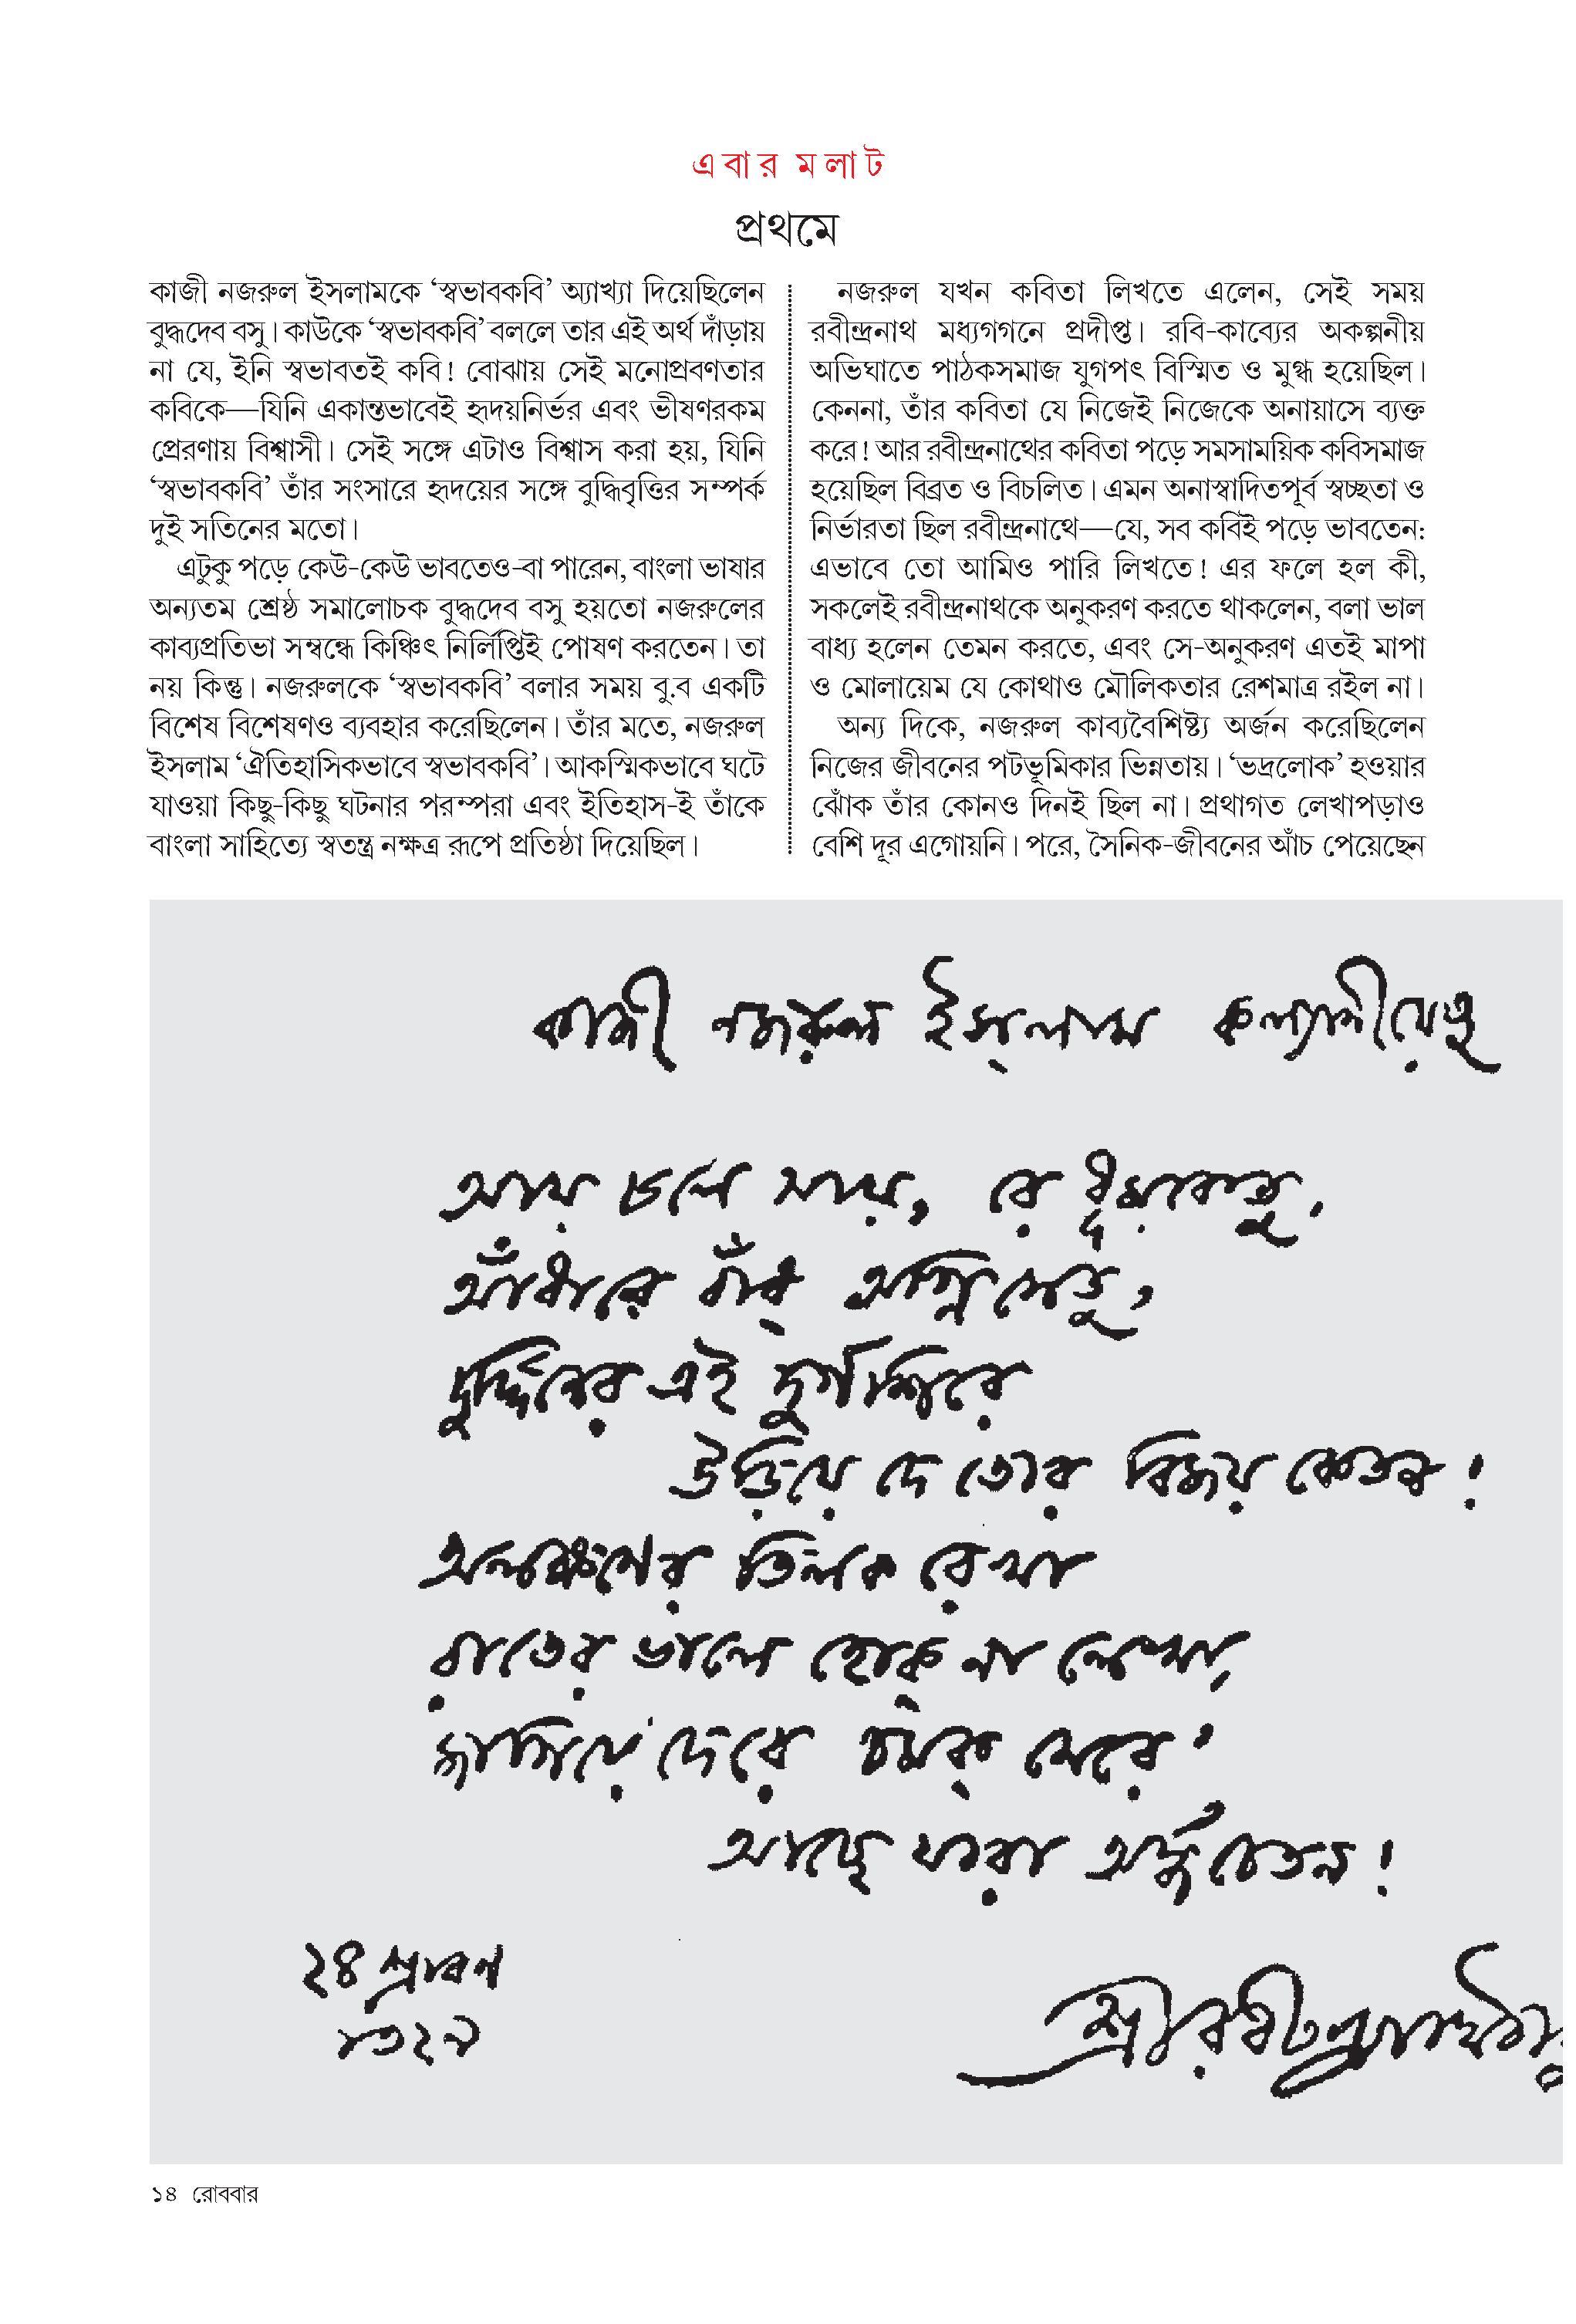 এবার মলাট
প্রথমে
কাজী নজরুল ইসলামকে ‘স্বভাবকবি’ অ্যাখ্যা দিয়েছিলেন
বুদ্ধদেব বসু। কাউকে ‘স্বভাবকবি’ বললে তার এই অর্থ দাঁড়ায়
না যে, ইনি স্বভাবতই কবি! বোঝায় সেই মনোপ্রবণতার
কবিকে—যিনি একান্তভাবেই হৃদয়নির্ভর এবং ভীষণরকম
প্রেরণায় বিশ্বাসী। সেই সঙ্গে এটাও বিশ্বাস করা হয়, যিনি
‘স্বভাবকবি’ তাঁর সংসারে হৃদয়ের সঙ্গে বুদ্ধিবৃত্তির সম্পর্ক
দুই সতিনের মতো।
এটুকু পড়ে কেউ-কেউ ভাবতেও-বা পারেন, বাংলা ভাষার
অন্যতম শ্রেষ্ঠ সমালোচক বুদ্ধদেব বসু হয়তো নজরুলের
কাব্যপ্রতিভা সম্বন্ধে কিঞ্চিৎ নির্লিপ্তিই পোষণ করতেন। তা
নয় কিন্তু। নজরুলকে ‘স্বভাবকবি’ বলার সময় বু.ব একটি
বিশেষ বিশেষণও ব্যবহার করেছিলেন। তাঁর মতে, নজরুল
ইসলাম ‘ঐতিহাসিকভাবে স্বভাবকবি’। আকস্মিকভাবে ঘটে
যাওয়া কিছু-কিছু ঘটনার পরম্পরা এবং ইতিহাস-ই তাঁকে
বাংলা সাহিত্যে স্বতন্ত্র নক্ষত্র রূপে প্রতিষ্ঠা দিয়েছিল।
নজরুল যখন কবিতা লিখতে এলেন, সেই সময়
রবীন্দ্রনাথ মধ্যগগনে প্রদীপ্ত। রবি-কাব্যের অকল্পনীয়
অভিঘাতে পাঠকসমাজ যুগপৎ বিস্মিত ও মুগ্ধ হয়েছিল।
কেননা, তাঁর কবিতা যে নিজেই নিজেকে অনায়াসে ব্যক্ত
করে! আর রবীন্দ্রনাথের কবিতা পড়ে সমসাময়িক কবিসমাজ
হয়েছিল বিব্রত ও বিচলিত। এমন অনাস্বাদিতপূর্ব স্বচ্ছতা ও
নির্ভারতা ছিল রবীন্দ্রনাথে—যে, সব কবিই পড়ে ভাবতেন:
এভাবে তো আমিও পারি লিখতে! এর ফলে হল কী,
সকলেই রবীন্দ্রনাথকে অনুকরণ করতে থাকলেন, বলা ভাল
বাধ্য হলেন তেমন করতে, এবং সে-অনুকরণ এতই মাপা
ও মোলায়েম যে কোথাও মৌলিকতার রেশমাত্র রইল না।
অন্য দিকে, নজরুল কাব্যবৈশিষ্ট্য অর্জন করেছিলেন
নিজের জীবনের পটভূমিকার ভিন্নতায়। ‘ভদ্রলোক’ হওয়ার
ঝোঁক তাঁর কোনও দিনই ছিল না। প্রথাগত লেখাপড়াও
বেশি দূর এগোয়নি। পরে, সৈনিক-জীবনের আঁচ পেয়েছেন
কাজী নজরুল ইস্‌লাম কল্যাণীয়েষু
আয় চলে আয়, রে ধূমকেতু,
আঁধারে বাঁধ্ অগ্নিসেতু,
দুর্দ্দিনের এই দুর্গশিরে
উড়িয়ে দে তোর বিজয় কেতন!
অলক্ষণের তিলক রেখা
রাতের ভালে হোক্ না লেখা,
জাগিয়ে দেরে চমক্ মেরে'
আছে যারা অর্দ্ধচেতন!
২৪ শ্রাবণ
১৩২৯
শ্রীরবীন্দ্রনাথ ঠাকু
১৪ রোববার